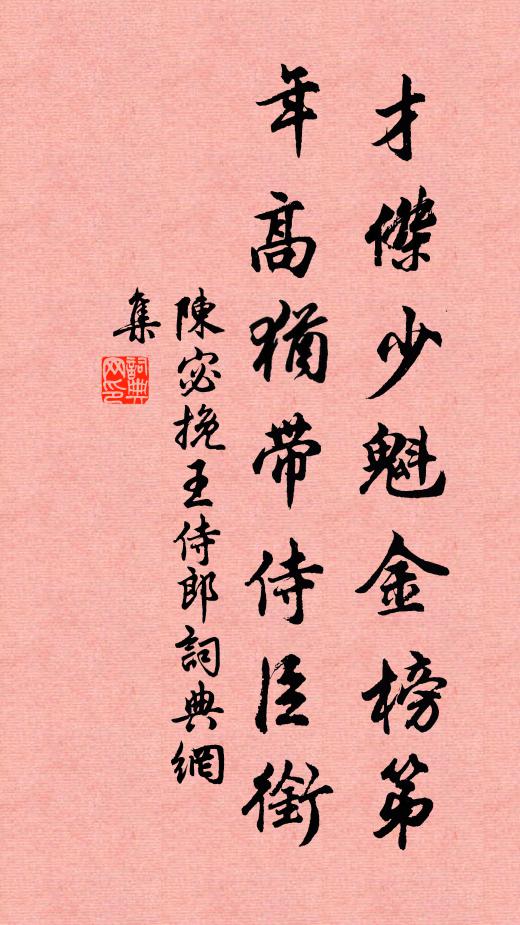 才傑少魁金榜第
年高猶帶侍臣銜
陳宓挽王侍郎詞典網
集
詞典
网印